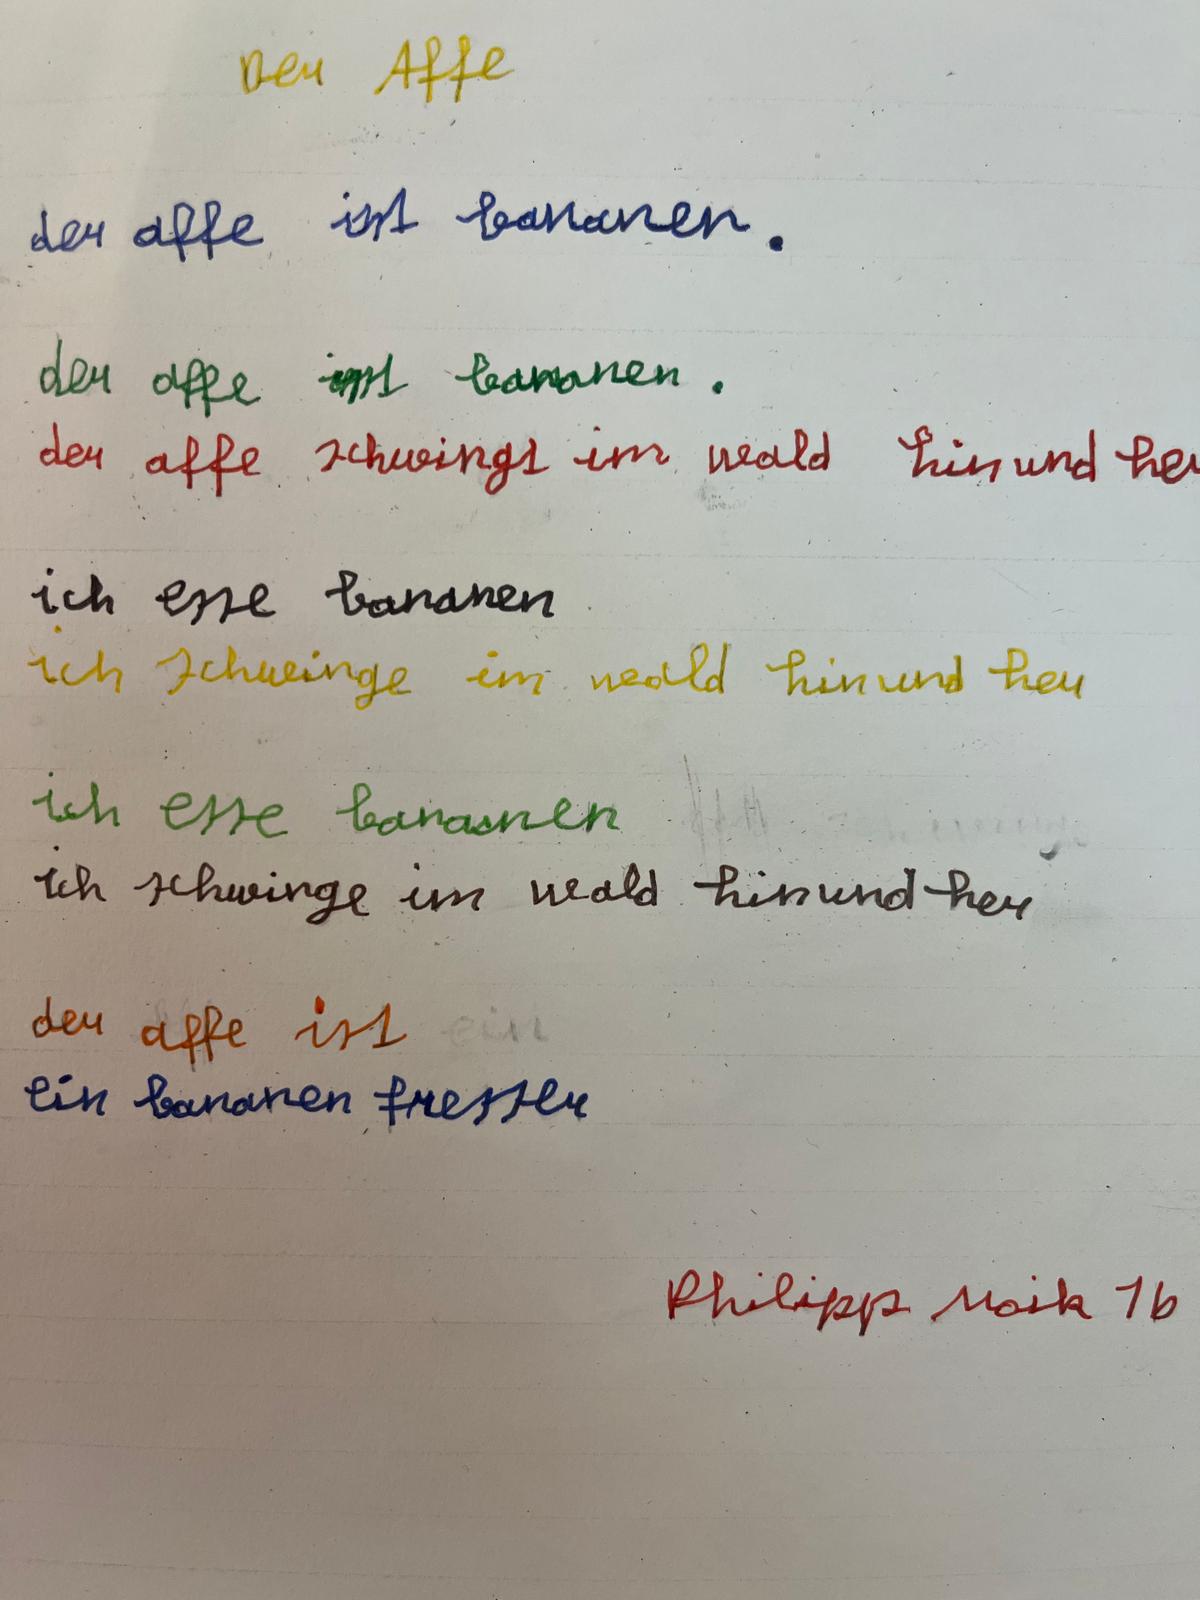 Der Affe
der affe ist bananen.
der affe ist bananen.
der affe schwingt im wald hin und her
ich esse bananen
ich schwinge im wald hin und her
ich esse bananen
ich schwinge im wald hin und her
der affe ist
ein bananen fresser
Philipp Moik 1b